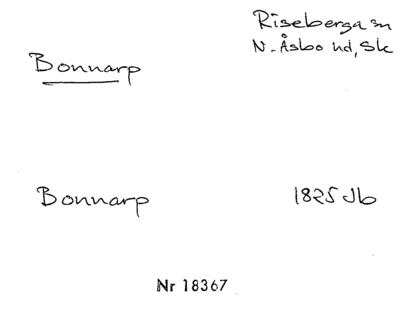 Riseberga sn
N. Åsbo hd, Sk
Bonnarp
Bonnarp 1825 Jb
Nr 18367